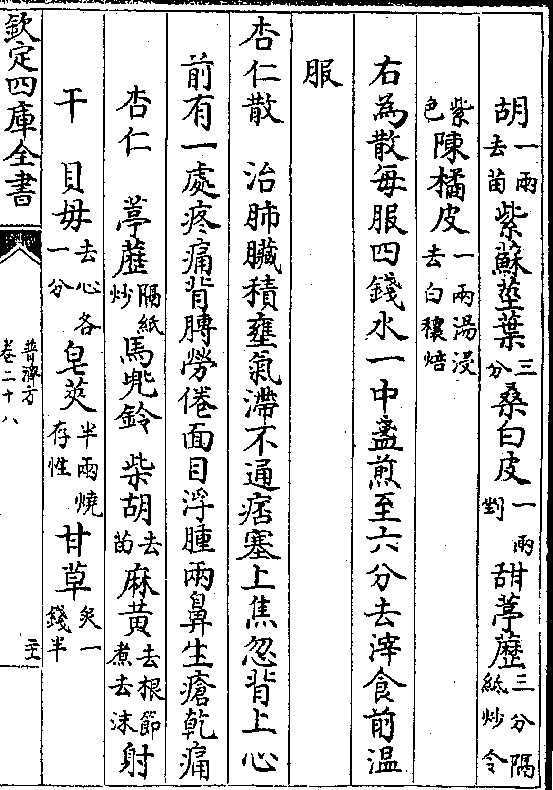 胡一兩去苗紫蘇莖葉三分桑白皮一兩剉甜葶藶三分隔紙炒令
紫色陳橘皮一兩湯浸去白穰焙
右為散每服四錢水一中盞煎至六分去滓食前温
服
杏仁散　治肺臟積壅氣滯不通痞塞上焦忽背上心
前有一處疼痛背膊勞倦面目浮腫兩鼻生瘡乾痛
杏仁　葶藶隔紙炒馬兠鈴　柴胡去苗麻黄去根節煮去沫射
干　貝母去心各一分皂莢半兩燒存性甘草炙一錢半
欽定四庫全書
普濟方
卷二十八